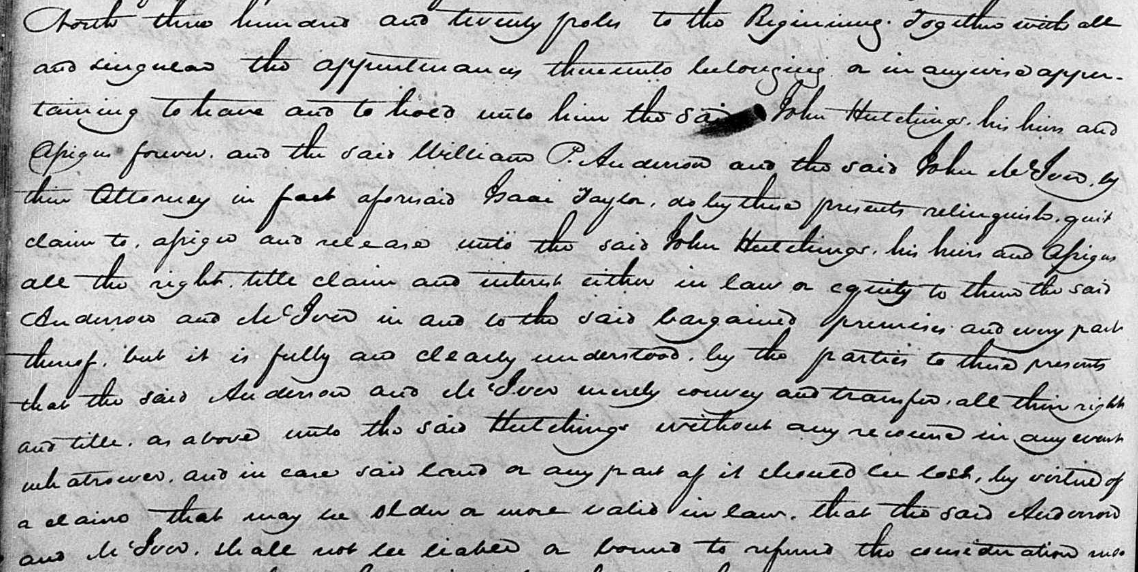 North three hundred and twenty poles to the Beginning. Together with all
and singular the appurtenances thereunto belonging or in anywise apper-
taining to have and to hold unto him the said John Hutchings, his heirs and
Assigns forever. and the said William P. Anderson and the said John McIver, by
their Attorney in fact aforesaid Isaac Taylor, do by these presents relinquish, quit
claim to, assign and release unto the said John Hutchings, his heirs and Assigns
all the right, title claim and interest either in law or equity to them the said
Anderson and McIver in and to the said bargained premises and every part
thereof, but it is fully and clearly understood, by the parties to these presents
that the said Anderson and McIver merely convey and transfer, all their right
and title, as above unto the said Hutchings without any recourse in any event
whatsoever, and in case said land or any part of it should be lost, by virtue of
a claim that may be older or more valid in law, that the said Anderson
and McIver, shall not be liable or bound to refund the consideration